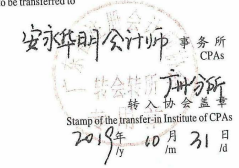 to be transferred to
安永华明会计师 事务所
CPAs
广州分所
转入协会盖章
Stamp of the transfer-in Institute of CPAs
2019年 10月 31日
/y /m /d